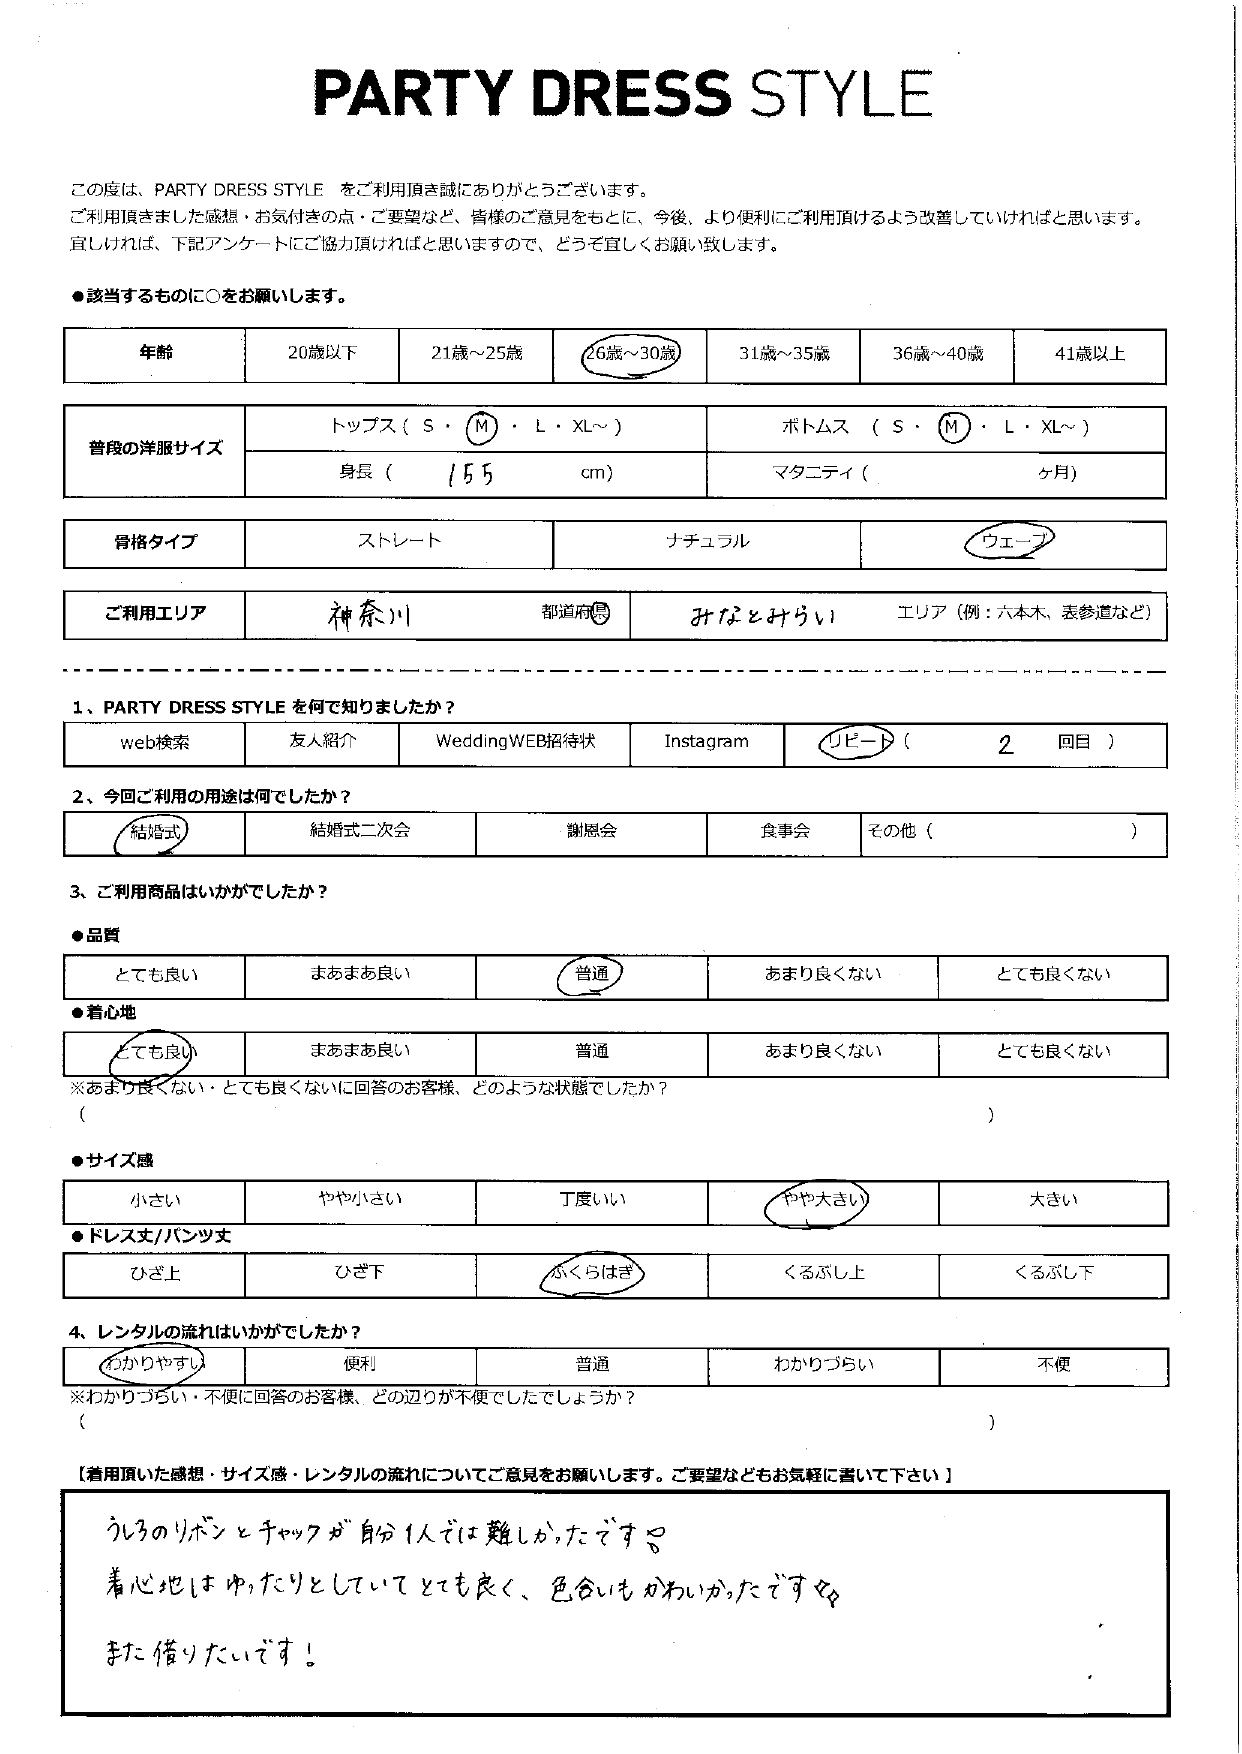 PARTY DRESS STYLE
この度は、PARTY DRESS STYLE　をご利用頂き誠にありがとうございます。
ご利用頂きました感想・お気付きの点・ご要望など、皆様のご意見をもとに、今後、より便利にご利用頂けるよう改善していければと思います。
宜しければ、下記アンケートにご協力頂ければと思いますので、どうぞ宜しくお願い致します。
●該当するものに○をお願いします。
年齢 20歳以下 21歳～25歳 26歳～30歳 31歳～35歳 36歳～40歳 41歳以上
普段の洋服サイズ トップス ( S ・ M ・ L ・ XL～ ) ボトムス ( S ・ M ・ L ・ XL～ )
身長 ( 155 cm) マタニティ ( ヶ月)
骨格タイプ ストレート ナチュラル ウェーブ
ご利用エリア 神奈川 都道府県 みなとみらい エリア（例：六本木、表参道など）
1、PARTY DRESS STYLE を何で知りましたか？
web検索 友人紹介 WeddingWEB招待状 Instagram リピート ( 2 回目 )
2、今回ご利用の用途は何でしたか？
結婚式 結婚式二次会 謝恩会 食事会 その他 ( )
3、ご利用商品はいかがでしたか？
●品質
とても良い まあまあ良い 普通 あまり良くない とても良くない
●着心地
とても良い まあまあ良い 普通 あまり良くない とても良くない
※あまり良くない・とても良くないに回答のお客様、どのような状態でしたか？
( )
●サイズ感
小さい やや小さい 丁度いい やや大きい 大きい
●ドレス丈/パンツ丈
ひざ上 ひざ下 ふくらはぎ くるぶし上 くるぶし下
4、レンタルの流れはいかがでしたか？
わかりやすい 便利 普通 わかりづらい 不便
※わかりづらい・不便に回答のお客様、どの辺りが不便でしたでしょうか？
( )
【着用頂いた感想・サイズ感・レンタルの流れについてご意見をお願いします。ご要望などもお気軽に書いて下さい 】
うしろのリボンとチャックが自分1人では難しかったです
着心地はゆったりとしていてとても良く、色合いもかわいかったです
また借りたいです！